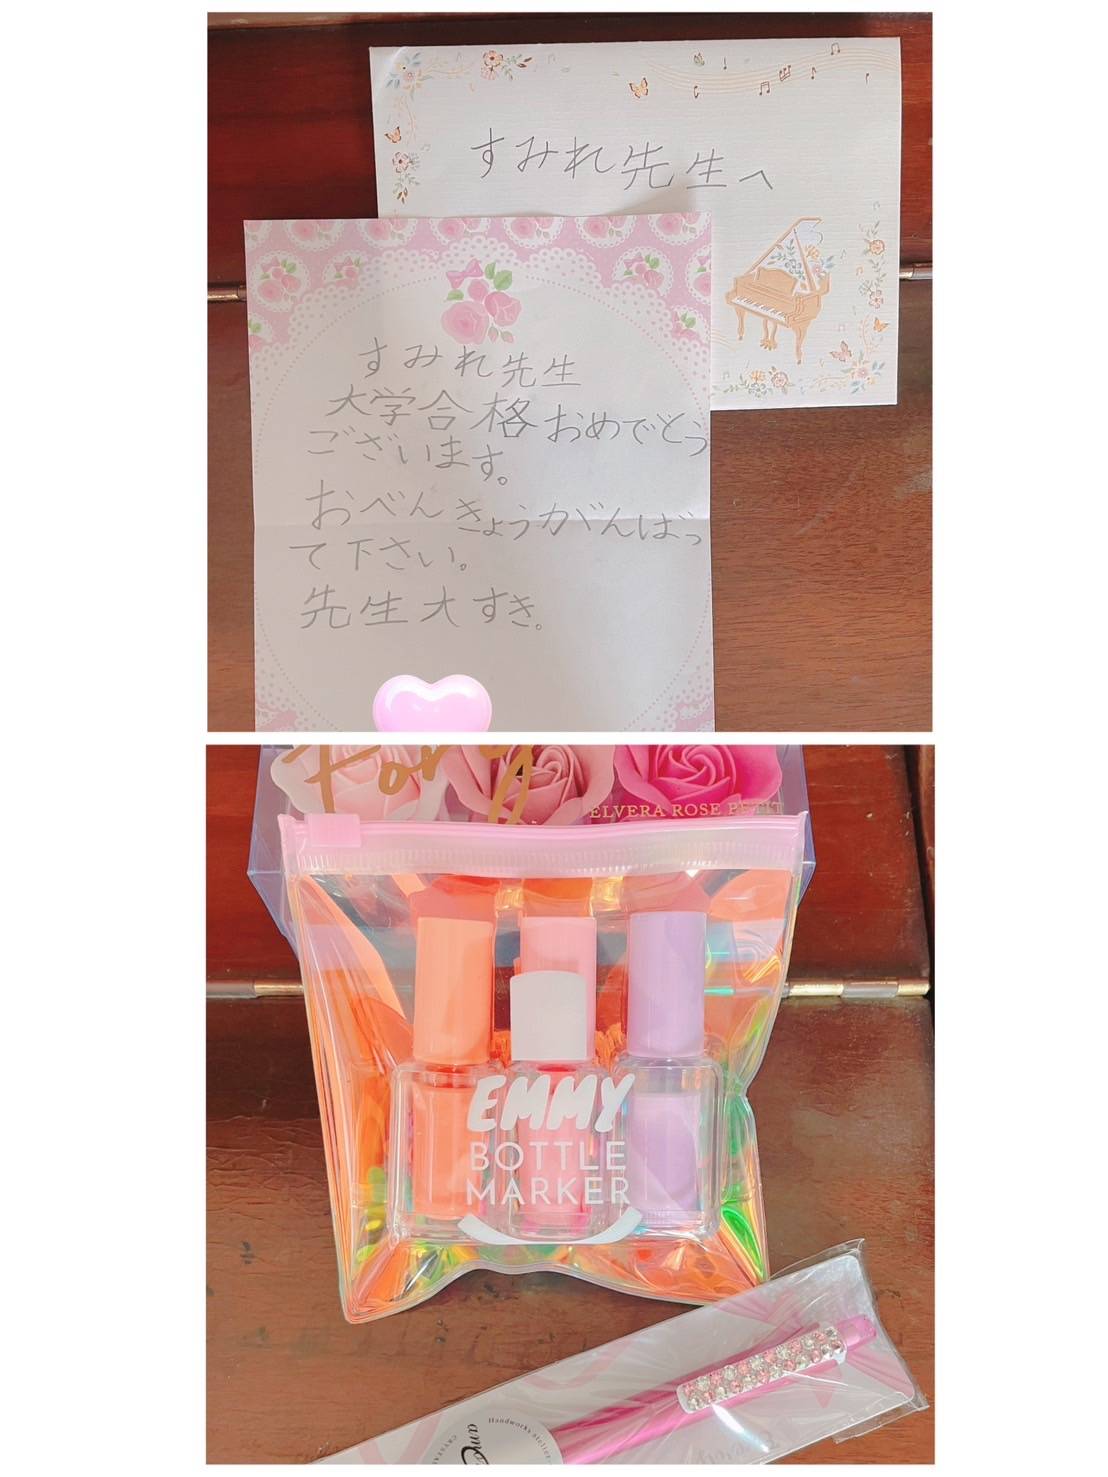 すみれ先生へ
すみれ先生
大学合格おめでとう
ございます。
おべんきょうがんばっ
て下さい。
先生大すき。
For
ELVERA ROSE PETIT
EMMY
BOTTLE
MARKER
Handworks atelier